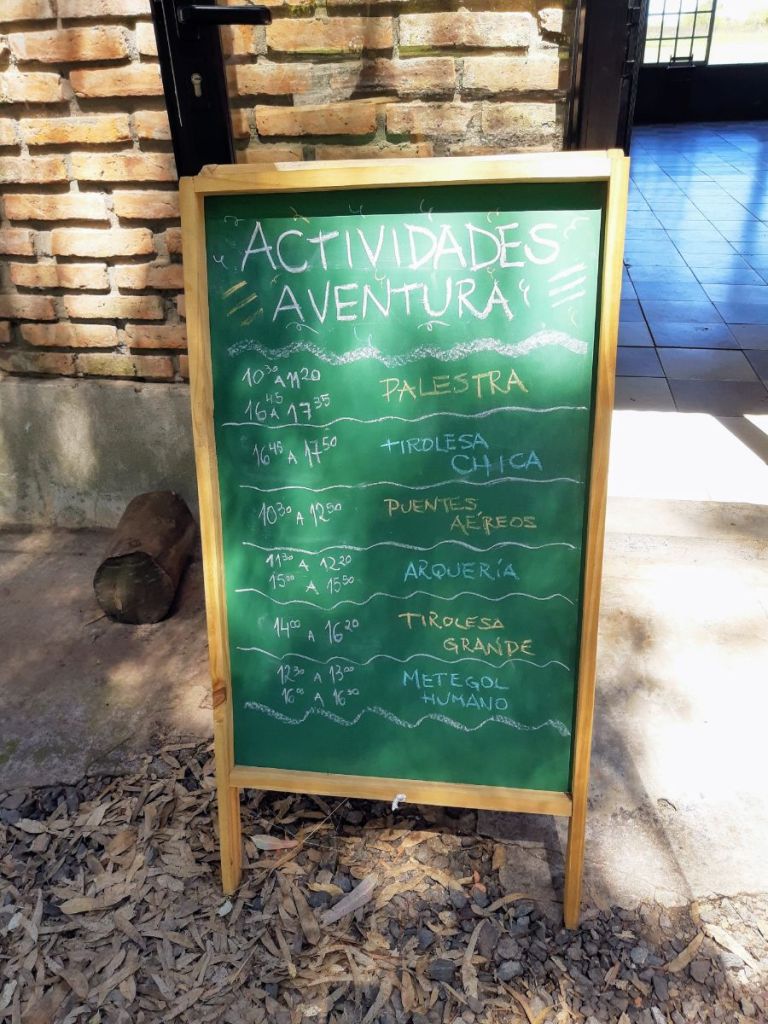 ACTIVIDADES
AVENTURA
10³⁰ A 11²⁰
16⁴⁵ A 17³⁵
PALESTRA
16⁴⁵ A 17⁵⁰
TIROLESA
CHICA
10³⁰ A 12⁵⁰
PUENTES
AÉREOS
11³⁰ A 12²⁰
15⁰⁰ A 15⁵⁰
ARQUERÍA
14⁰⁰ A 16²⁰
TIROLESA
GRANDE
12³⁰ A 13⁰⁰
16⁰⁰ A 16³⁰
METEGOL
HUMANO